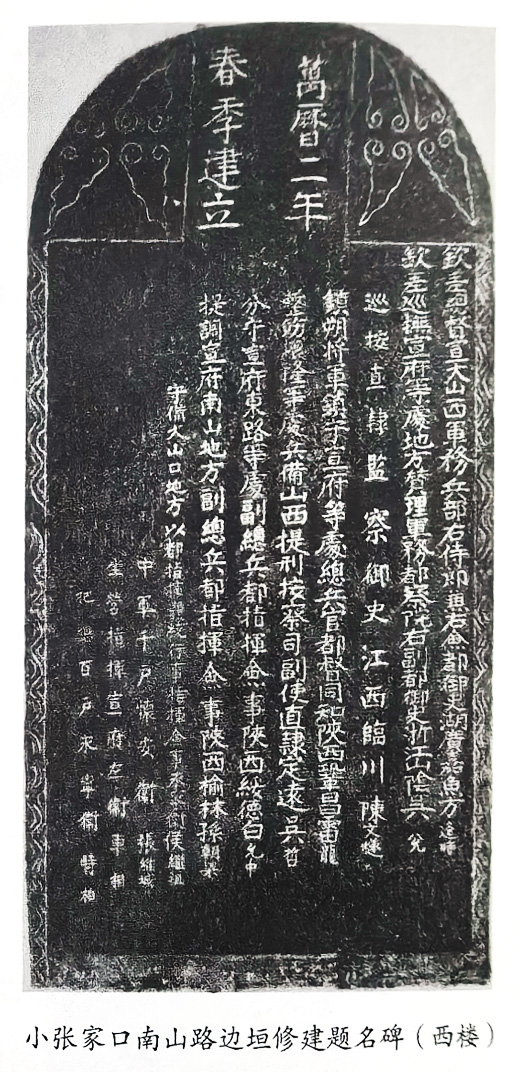 萬曆二年
春季建立
欽差總督宣大山西軍務兵部右侍郎兼右僉都御史湖廣嘉魚方逢時
欽差巡撫宣府等處地方贊理軍務都察院右副都御史浙江山陰吳兌
巡按直隸監察御史江西臨川陳文燧
鎮朔將軍鎮守宣府等處總兵官都督同知陝西鞏昌雷龍
整飭懷隆等處兵備山西提刑按察司副使直隸定遠吳哲
分守宣府東路等處副總兵都指揮僉事陝西綏德白允中
提調宣府南山地方副總兵都指揮僉事陝西榆林孫朝
守備大山口地方以都指揮體統行事指揮僉事永寧衛侯繼祖
中軍千戶懷安衛張維城
坐營指揮宣府左衛車相
把總百戶永寧衛特相
小张家口南山路边垣修建题名碑（西楼）